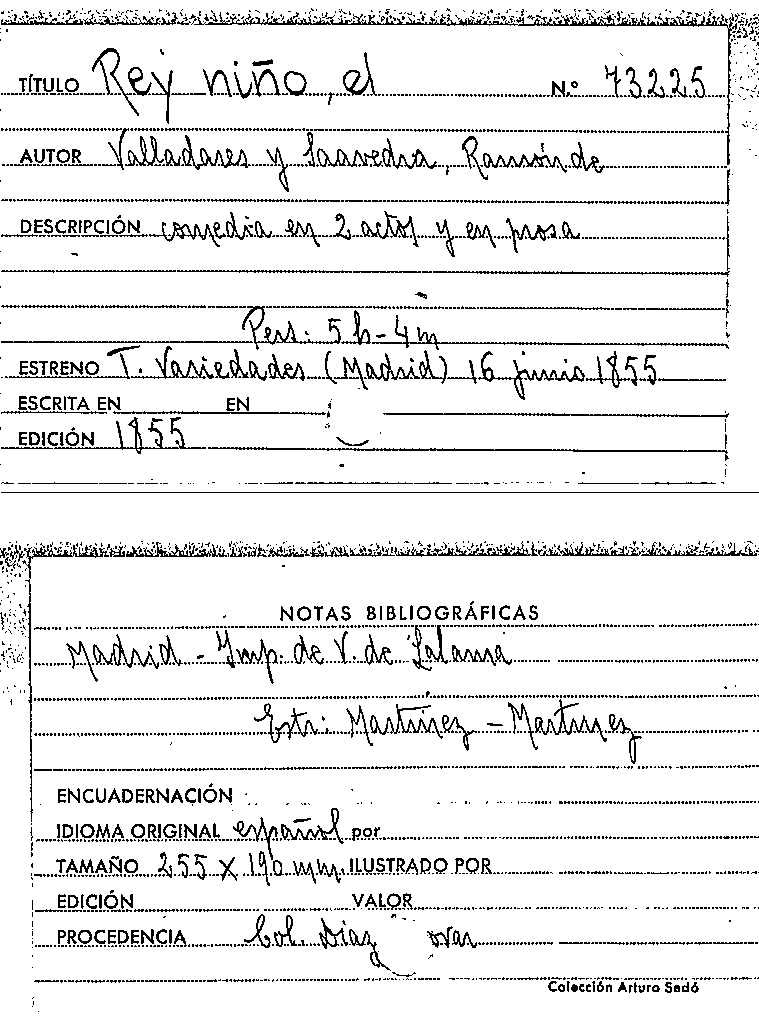 TÍTULO Rey niño, el N.º 73225
AUTOR Valladares y Saavedra, Ramón de
DESCRIPCIÓN comedia en 2 actos y en prosa
Pers: 5 h - 4 m
ESTRENO T. Variedades (Madrid) 16 junio 1855
ESCRITA EN EN
EDICIÓN 1855
NOTAS BIBLIOGRÁFICAS
Madrid - Imp. de V. de Lalama
Estr: Martínez - Martínez
ENCUADERNACIÓN
IDIOMA ORIGINAL español por
TAMAÑO 255 X 190 mm. ILUSTRADO POR
EDICIÓN VALOR
PROCEDENCIA Col. Díaz
Colección Arturo Sedó